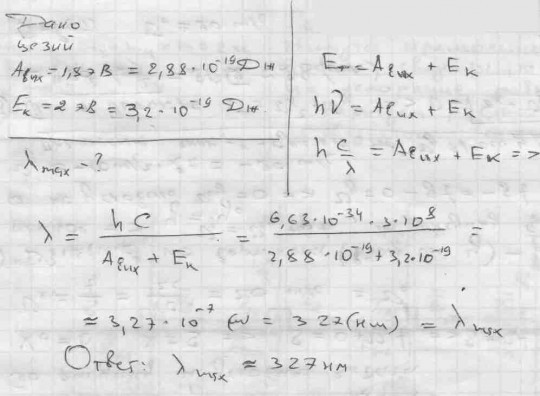 Дано
цезий
Aвых = 1,8 эВ = 2,88·10⁻¹⁹ Дж
Eк = 2 эВ = 3,2·10⁻¹⁹ Дж
λmax - ?
Eт = Aвых + Eк
hν = Aвых + Eк
h c/λ = Aвых + Eк =>
λ = hc/(Aвых + Eк) = (6,63·10⁻³⁴·3·10⁸)/(2,88·10⁻¹⁹+3,2·10⁻¹⁹) =
≈ 3,27·10⁻⁷ м = 327(нм) = λmax
Ответ: λmax ≈ 327нм